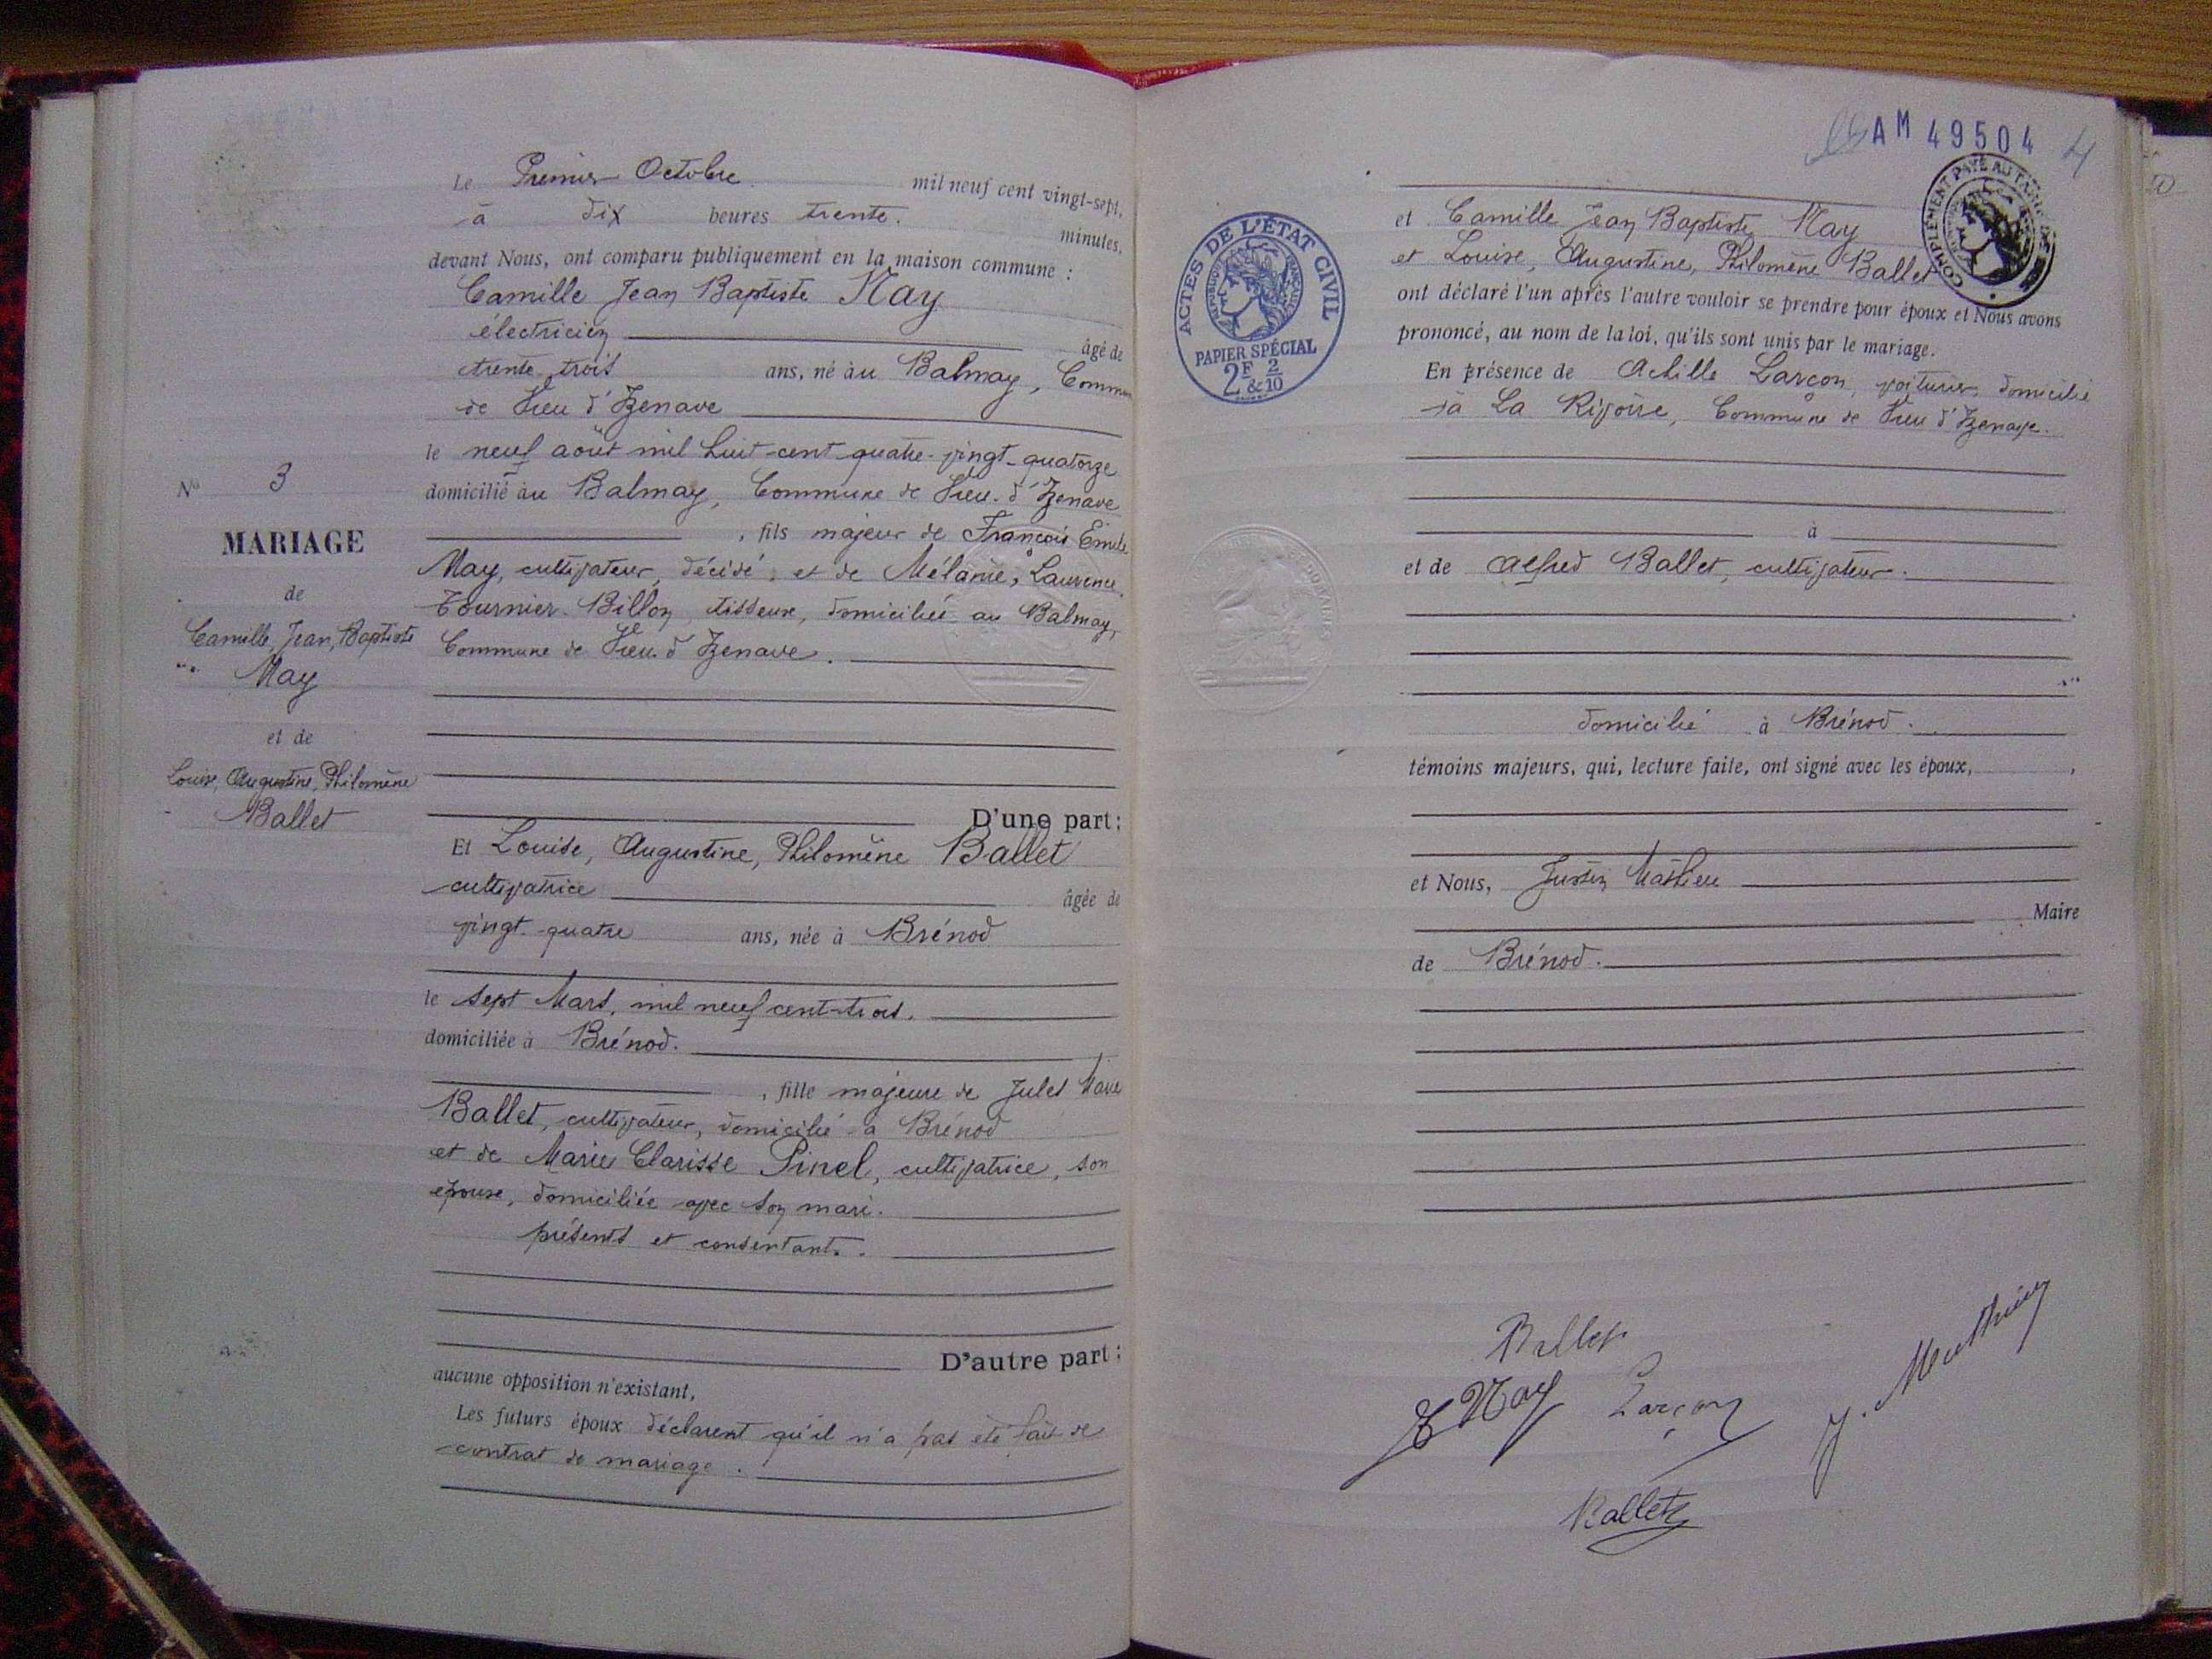 Le Premier Octobre mil neuf cent vingt-sept,
à dix heures trente. minutes,
devant Nous, ont comparu publiquement en la maison commune :
Camille Jean Baptiste May
électricien âgé de
trente trois ans, né àu Balmay, Commune
de Vieu d'Izenave
le neuf août mil huit-cent-quatre-vingt-quatorze
domicilié àu Balmay, Commune de Vieu-d'Izenave
, fils majeur de François Emile
May, cultivateur, décédé, et de Mélanie, Laurence
Tournier-Billon, tisseuse, domiciliée au Balmay,
Commune de Vieu d'Izenave.
D'une part :
Et Louise, Augustine, Philomène Ballet
cultivatrice âgée de
vingt-quatre ans, née à Brénod
le sept Mars, mil neuf cent-trois.
domiciliée à Brénod.
, fille majeure de Jules Marie
Ballet, cultivateur, domicilié à Brénod
et de Marie Clarisse Pinel, cultivatrice, son
épouse, domiciliée avec son mari.
présents et consentants.
D'autre part :
aucune opposition n'existant,
Les futurs époux déclarent qu'il n'a pas été fait de
contrat de mariage.
No 3
MARIAGE
de
Camille, Jean, Baptiste
May
et de
Louise, Augustine, Philomène
Ballet
AM 49504
4
COMPLÉMENT PAYÉ AU TARIF DE
ACTES DE L'ÉTAT CIVIL
RÉPUBLIQUE FRANÇAISE
PAPIER SPÉCIAL
2F & 2/10
et Camille Jean Baptiste May
et Louise, Augustine, Philomène Ballet
ont déclaré l'un après l'autre vouloir se prendre pour époux et Nous avons
prononcé, au nom de la loi, qu'ils sont unis par le mariage.
En présence de Achille Larçon, voiturier, domicilié
à La Rivoire, Commune de Vieu d'Izenave.
à
et de Alfred Ballet, cultivateur.
domicilié à Brénod.
témoins majeurs, qui, lecture faite, ont signé avec les époux,
et Nous, Justin Mathieu
Maire
de Brénod.
Ballet
May Larçon
J. Mathieu
Ballet